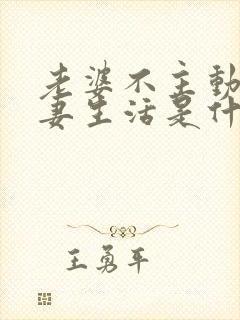 老婆不主动
妻生活是什
王勇平